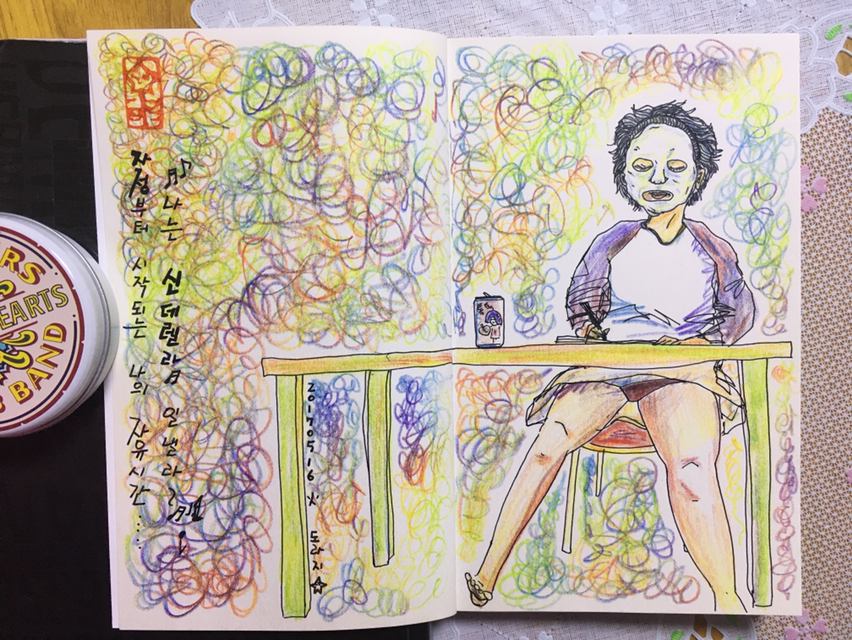 자정부터 시작되는 나의 자유시간......
♬♪나는 신데렐라♬ 일낸다~♬♪!
20170516 火 도라지☆
HEARTS
BAND